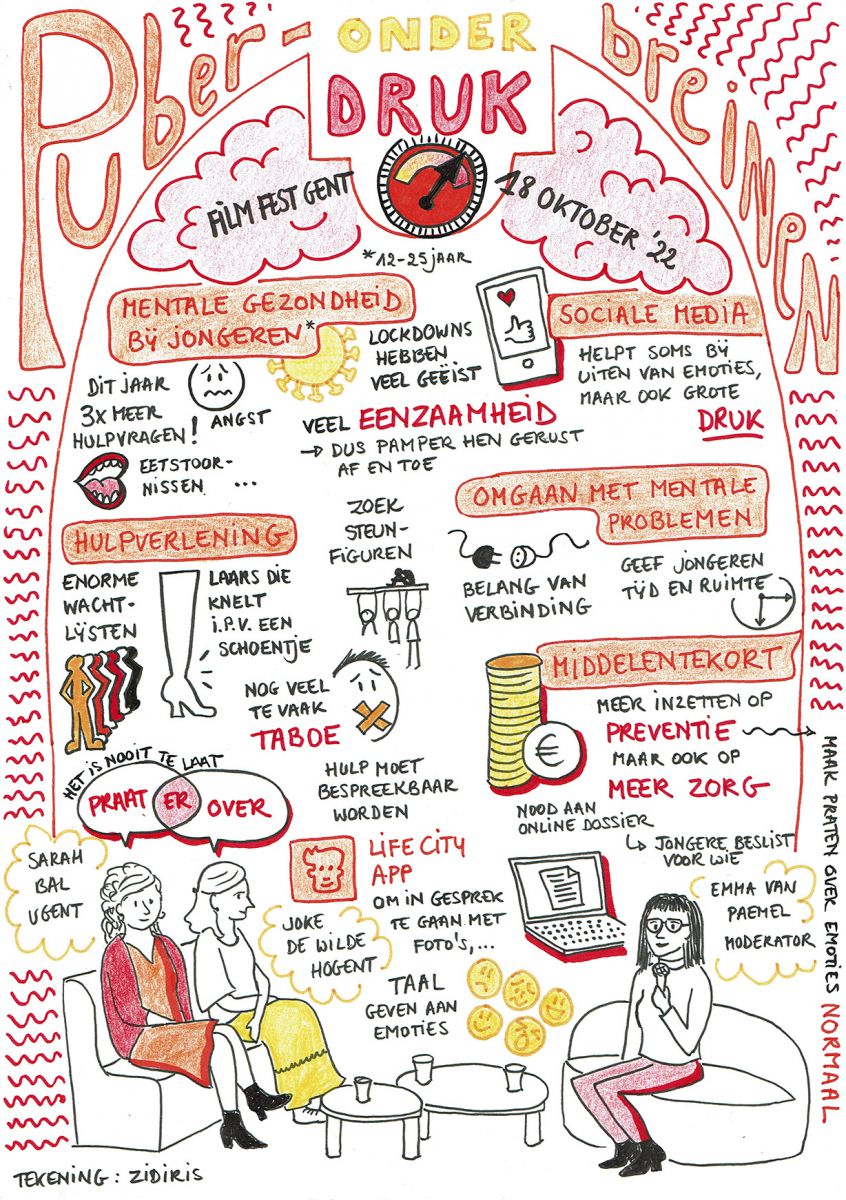 Puber-
ONDER
DRUK
breinen
FILM FEST GENT
18 OKTOBER '22
*12-25 jaar
MENTALE GEZONDHEID
BIJ JONGEREN*
DIT JAAR
3x MEER
HULPVRAGEN!
ANGST
EETSTOOR-
NISSEN ...
LOCKDOWNS
HEBBEN
VEEL GEËIST
VEEL EENZAAMHEID
→ DUS PAMPER HEN GERUST
AF EN TOE
SOCIALE MEDIA
HELPT SOMS BIJ
UITEN VAN EMOTIES,
MAAR OOK GROTE
DRUK
HULPVERLENING
ENORME
WACHT-
LIJSTEN
LAARS DIE
KNELT
I.P.V. EEN
SCHOENTJE
ZOEK
STEUN-
FIGUREN
OMGAAN MET MENTALE
PROBLEMEN
BELANG VAN
VERBINDING
GEEF JONGEREN
TIJD EN RUIMTE
NOG VEEL
TE VAAK
TABOE
HULP MOET
BESPREEKBAAR
WORDEN
MIDDELENTEKORT
€
MEER INZETTEN OP
PREVENTIE
MAAR OOK OP
MEER ZORG
MAAK PRATEN OVER EMOTIES NORMAAL
NOOD AAN
ONLINE DOSSIER
↳ JONGERE BESLIST
VOOR WIE
HET IS NOOIT TE LAAT
PRAAT ER OVER
LIFE CITY
APP
OM IN GESPREK
TE GAAN MET
FOTO'S,...
TAAL
GEVEN AAN
EMOTIES
SARAH
BAL
UGENT
JOKE
DE WILDE
HOGENT
EMMA VAN
PAEMEL
MODERATOR
TEKENING: ZIDIRIS